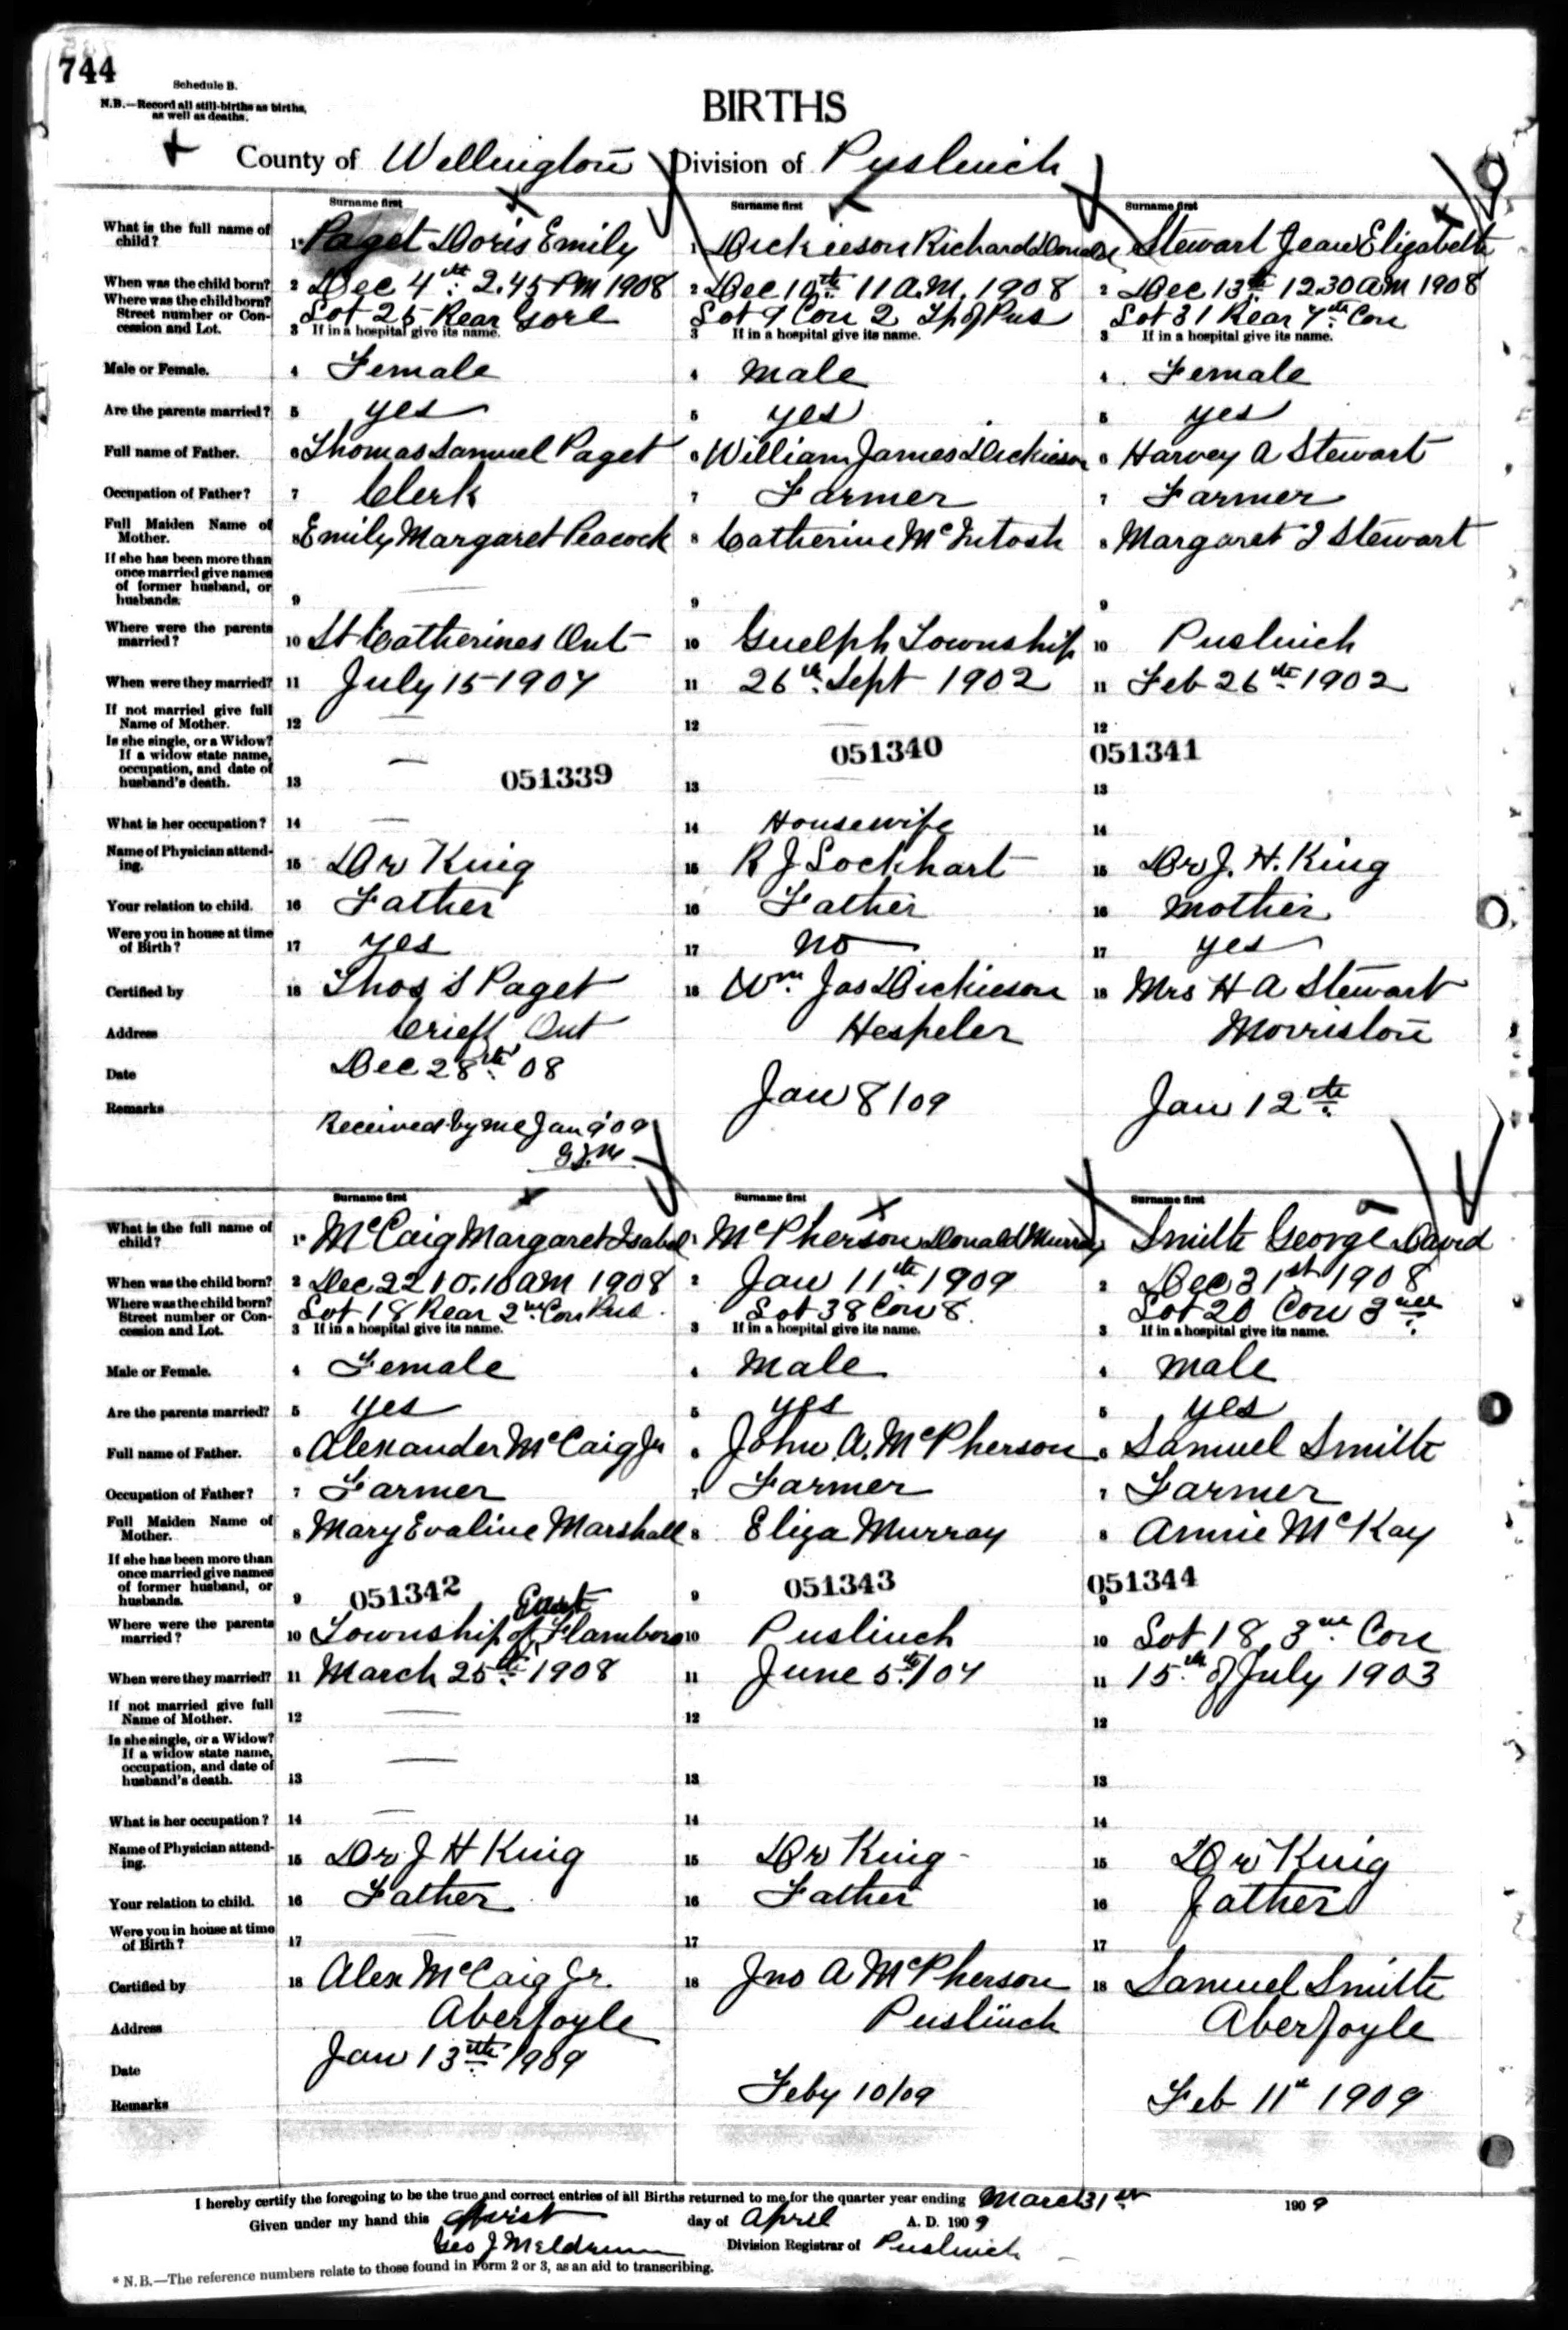 744
Schedule B.
N.B.—Record all still-births as births,
as well as deaths.
BIRTHS
County of Wellington Division of Puslinch
Surname first
Surname first
Surname first
What is the full name of child?
1* Paget Doris Emily
1 Dickieson Richard Donald
Stewart Jean Elizabeth
When was the child born?
2 Dec 4th 2.45 PM 1908
2 Dec 10th 11 A.M. 1908
2 Dec 13th 12.30 am 1908
Where was the child born? Street number or Concession and Lot.
Lot 25 Rear Gore
Lot 9 Con 2 Tp of Pus
Lot 31 Rear 7th Con
3 If in a hospital give its name.
3 If in a hospital give its name.
3 If in a hospital give its name.
Male or Female.
4 Female
4 male
4 Female
Are the parents married?
5 yes
5 yes
5 yes
Full name of Father.
6 Thomas Samuel Paget
6 William James Dickieson
6 Harvey A Stewart
Occupation of Father?
7 Clerk
7 Farmer
7 Farmer
Full Maiden Name of Mother.
8 Emily Margaret Peacock
8 Catherine McIntosh
8 Margaret J Stewart
If she has been more than once married give names of former husband, or husbands.
9
9
9
Where were the parents married?
10 St Catherines Ont
10 Guelph Township
10 Puslinch
When were they married?
11 July 15 1907
11 26th Sept 1902
11 Feb 26th 1902
If not married give full Name of Mother.
12 —
12 —
12
Is she single, or a Widow? If a widow state name, occupation, and date of husband's death.
13 —
051339
051340
13
051341
13
What is her occupation?
14 —
14 Housewife
14
Name of Physician attending.
15 Dr King
15 R J Lockhart
15 Dr J. H. King
Your relation to child.
16 Father
16 Father
16 mother
Were you in house at time of Birth?
17 yes
17 no
17 yes
Certified by
18 Thos S Paget
18 Wm. Jas Dickieson
18 Mrs H A Stewart
Address
Crieff Ont
Hespeler
Morriston
Date
Dec 28th 08
Jan 8/09
Jan 12th
Remarks
Received by me Jan 9 '09
G.J.M.
Surname first
Surname first
Surname first
What is the full name of child?
1* McCaig Margaret Isabel
1 McPherson Donald Murray
Smith George David
When was the child born?
2 Dec 22 10.10 am 1908
2 Jan 11th 1909
2 Dec 31st 1908
Where was the child born? Street number or Concession and Lot.
Lot 18 Rear 2nd Con Pus
Lot 38 Con 8.
Lot 20 Con 3rd
3 If in a hospital give its name.
3 If in a hospital give its name.
3 If in a hospital give its name.
Male or Female.
4 Female
4 male
4 male
Are the parents married?
5 yes
5 yes
5 yes
Full name of Father.
6 Alexander McCaig Jr
6 John A. McPherson
6 Samuel Smith
Occupation of Father?
7 Farmer
7 Farmer
7 Farmer
Full Maiden Name of Mother.
8 Mary Evaline Marshall
8 Eliza Murray
8 Annie McKay
If she has been more than once married give names of former husband, or husbands.
9 051342
9 051343
9 051344
Where were the parents married?
10 Township of East Flamboro
10 Puslinch
10 Lot 18, 3rd Con
When were they married?
11 March 25th 1908
11 June 5th/04
11 15th of July 1903
If not married give full Name of Mother.
12 —
12
12
Is she single, or a Widow? If a widow state name, occupation, and date of husband's death.
13 —
13
13
What is her occupation?
14 —
14
14
Name of Physician attending.
15 Dr J H King
15 Dr King
15 Dr King
Your relation to child.
16 Father
16 Father
16 father
Were you in house at time of Birth?
17 —
17
17
Certified by
18 Alex McCaig Jr.
18 Jno A McPherson
18 Samuel Smith
Address
Aberfoyle
Puslinch
Aberfoyle
Date
Jan 13th 1909
Feby 10/09
Feb 11th 1909
Remarks
I hereby certify the foregoing to be the true and correct entries of all Births returned to me for the quarter year ending March 31st 1909
Given under my hand this first day of April A. D. 1909
Geo J Meldrum Division Registrar of Puslinch
* N.B.—The reference numbers relate to those found in Form 2 or 3, as an aid to transcribing.